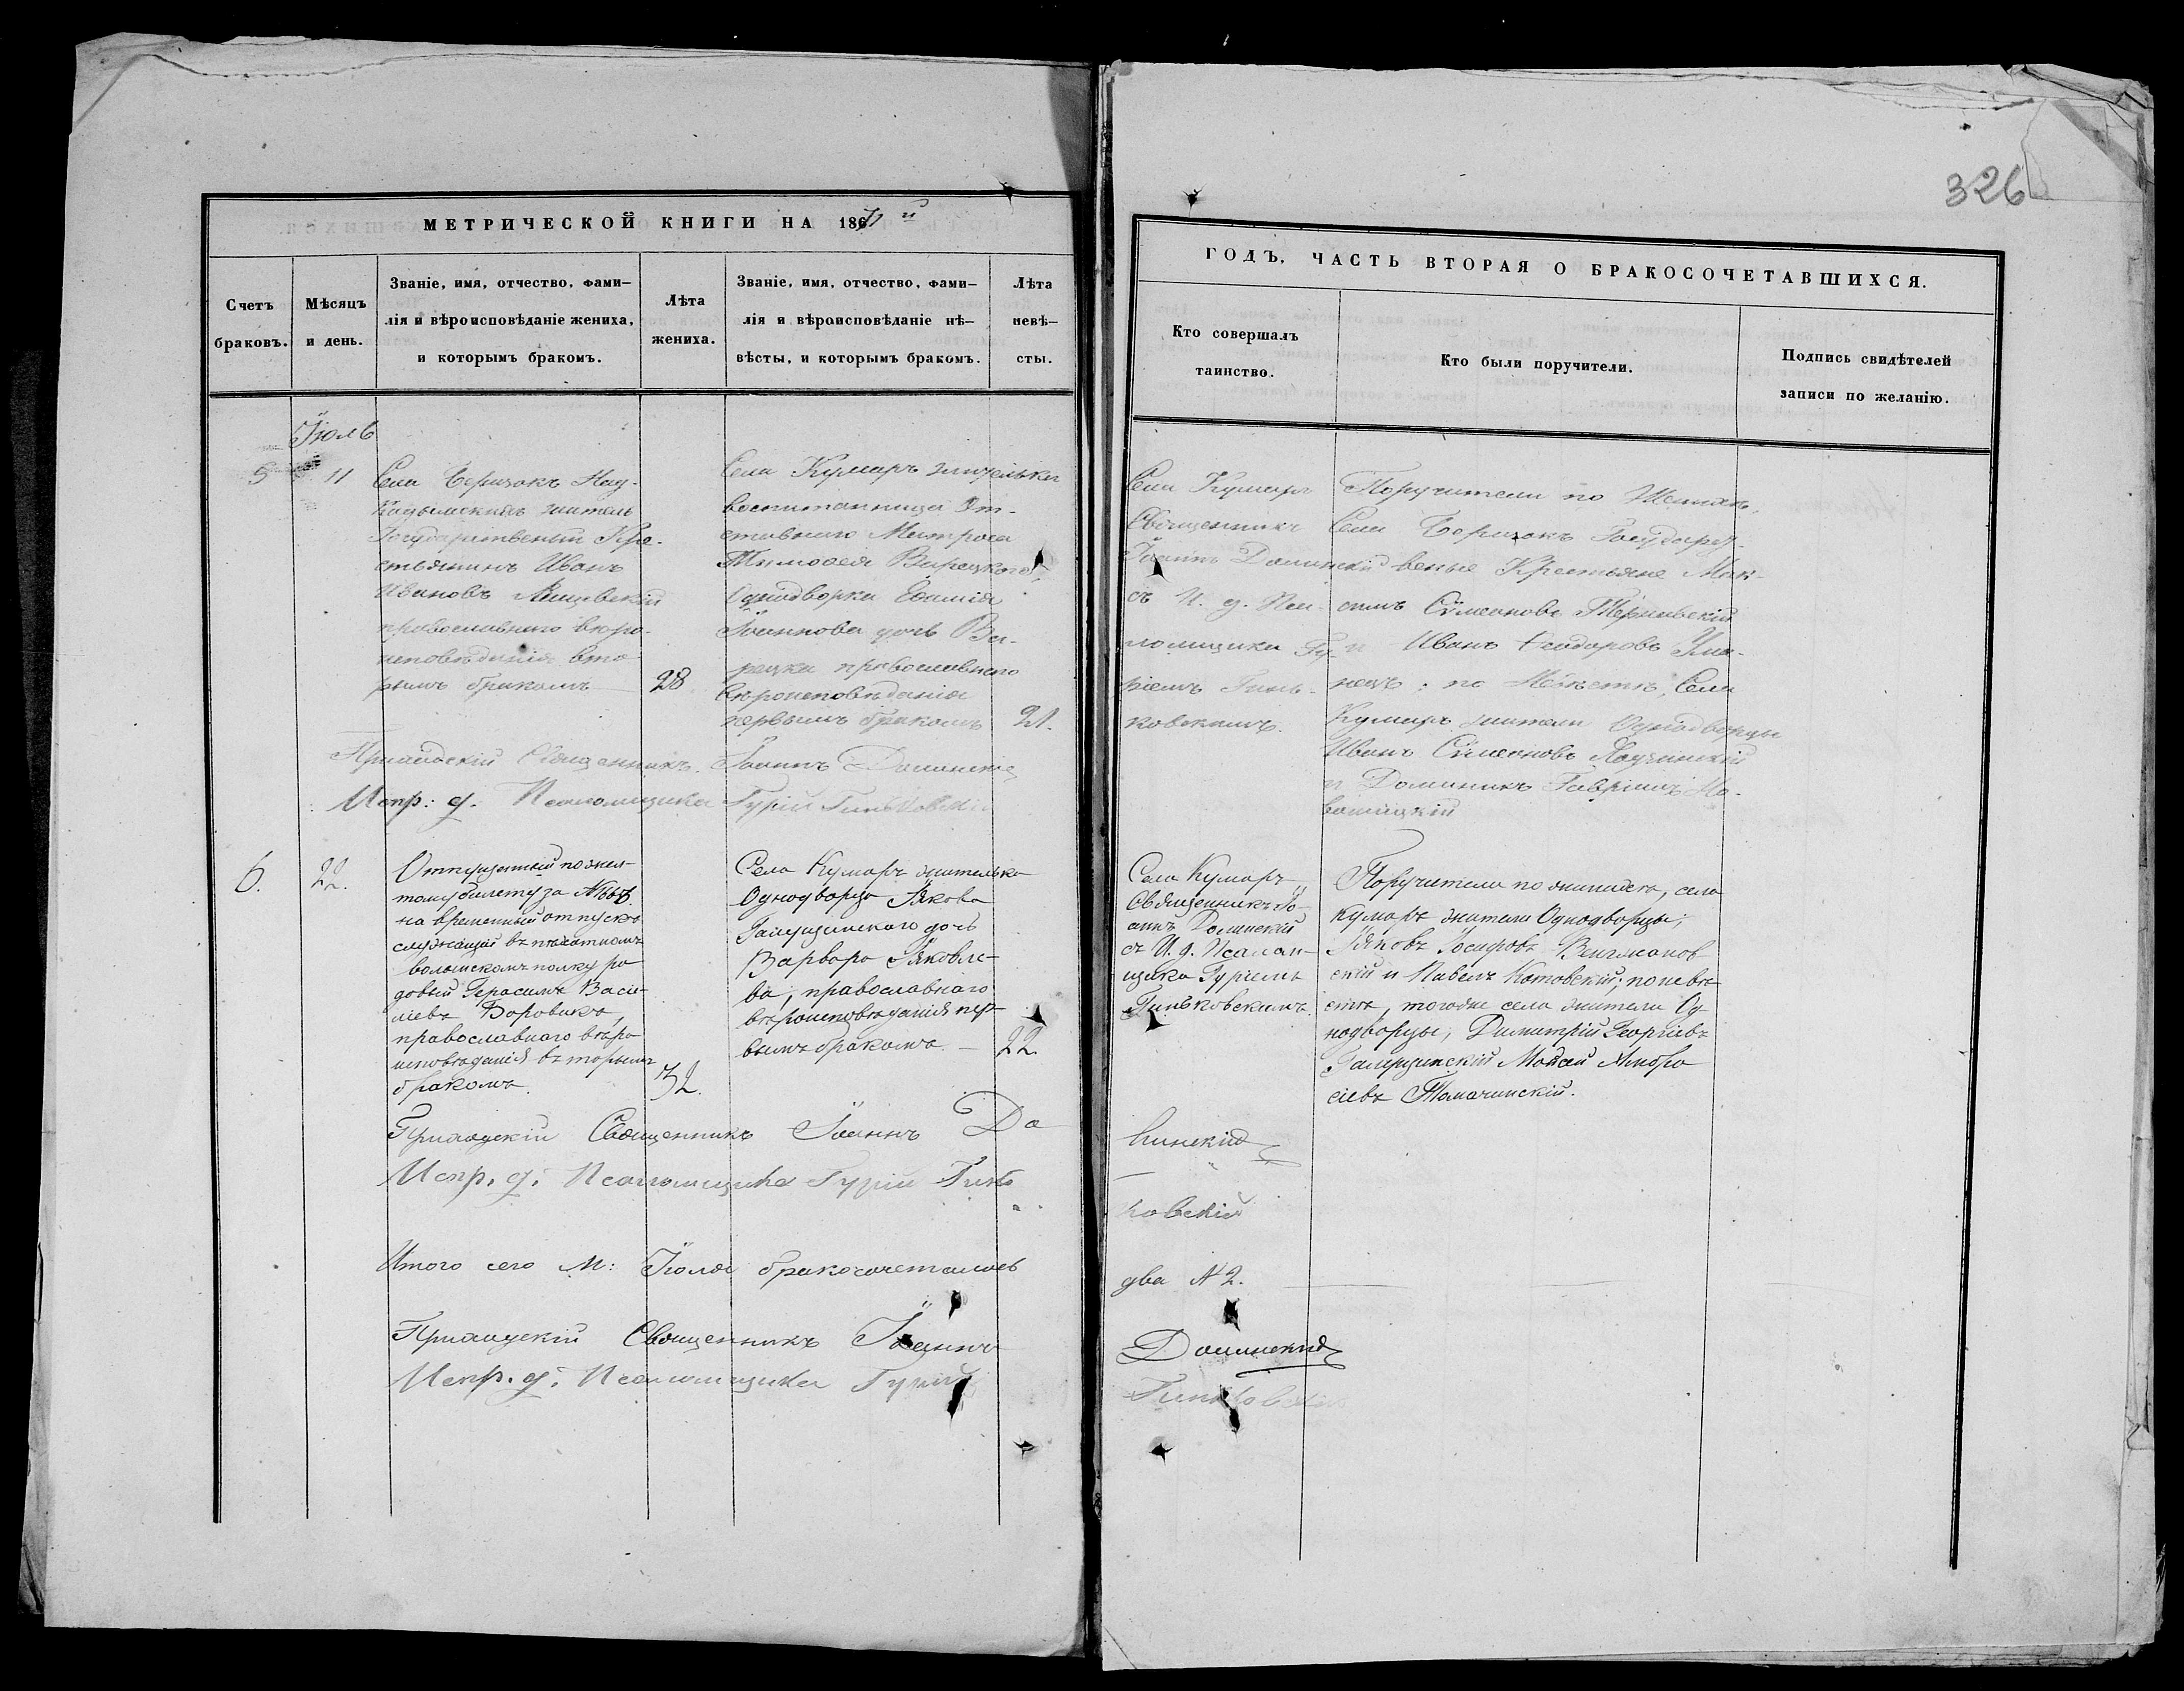 326
МЕТРИЧЕСКОЙ КНИГИ НА 1871 й
ГОДЪ, ЧАСТЬ ВТОРАЯ О БРАКОСОЧЕТАВШИХСЯ.
Счетъ
браковъ.
Мѣсяцъ
и день.
Званіе, имя, отчество, фами-
лія и вѣроисповѣданіе жениха,
и которымъ бракомъ.
Лѣта
жениха.
Званіе, имя, отчество, фами-
лія и вѣроисповѣданіе нѣ-
вѣсты, и которымъ бракомъ.
Лѣта
невѣ-
сты.
Кто совершалъ
таинство.
Кто были поручители.
Подпись свидѣтелей
записи по желанію.
Іюль
5
11
Села Беризокъ
житель
Государственый Кре-
стьянинъ Иванъ
Ивановъ
православного вѣро-
исповѣданія вто-
рымъ бракомъ
28
Села Кумаръ жителька
воспитанница От-
ставного Матроса
Тимофея
Однодворка
Іоаннова дочь
православного
вѣроисповѣданія
первымъ бракомъ
21.
Села Кумаръ
Священникъ
Іоаннъ Долинскій
съ И. д. Псал-
ломщика Гу-
ріемъ Гинь-
ковскимъ.
Поручители по Жениху,
Села Беризокъ Государст-
веные Крестьяне Мак-
симъ Сѵмеоновъ
и Иванъ Феодоровъ
по Невѣстѣ, Села
Кумаръ жители Однодворцы
Иванъ Сѵмеоновъ
и Доминикъ Гавріилъ Но-
вацкій
Приходскій Священникъ Іоаннъ Долинскій
Испр: д. Псаломщика Гурій Гиньковскій
6.
22.
Отпущеный по жел-
тому билету за №
на временный отпускъ
служащій въ пѣхотномъ
волынскомъ полку ря-
довый Герасимъ Васи-
ліевъ Боровикъ,
православнаго вѣро
исповѣданія вторымъ
бракомъ.
32.
Села Кумаръ жителька
Однодворца Іякова
Галущинского дочь
Варвара Іяковле-
ва, православнаго
вѣроисповѣданія пер-
вымъ бракомъ —
22.
Села Кумаръ
Священникъ Іо-
аннъ Долинскій
съ И. д. Псалом-
щика Гуріемъ
Гиньковскимъ.
Поручители по жениху, села
Кумаръ жители Однодворцы;
Іяковъ Іосифовъ
скій и Павелъ Котовскій; по невѣ-
стѣ, тогоже села жители Од-
нодворцы, Димитрій Георгіевъ
Галущинскій Мойсей Амвро
сіевъ Томачинскій.
Приходскій Священникъ Іоаннъ До
линскій
Испр. д. Псаломщика Гурій Гинь
ковскій
Итого сего м: Іюля бракосочеталось
два № 2.
Приходскій Священникъ Іоаннъ
Долинскій
Испр. д. Псаломщика Гурій
Гиньковскій